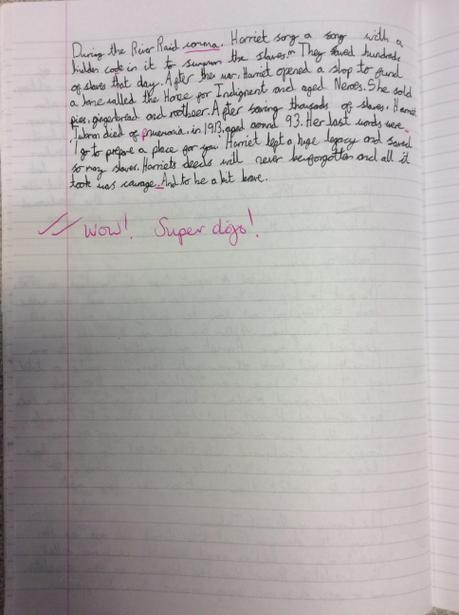 During the River Raid comma, Harriet song a song with a
hidden code in it to summon the slaves." They saved hundreds
of slaves that day. After the war, Harriet opened a shop to fund
a home called the Home for Indignent and aged Neroes. She sold
pies, gingerbread and rootbeer. After saving thousands of slaves, Harriet
Tubman died of pnuemonia, in 1913, aged around 93. Her last words were
'I go to prepare a place for you. Harriet left a huge legacy and saved
so many slaves. Harriets deeds will never be forgotten and all it
took was courage. And to be a bit brave.
Wow! Super dojo!